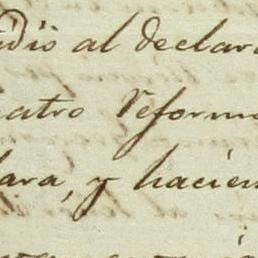 idió al declara
eatro Reforma
lara, y hacien